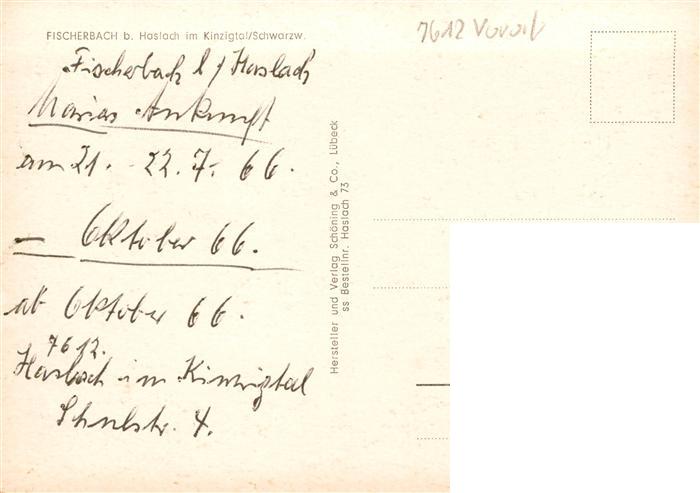 FISCHERBACH b. Haslach im Kinzigtal/Schwarzw.
7612
Fischerbach b/ Haslach
Marias Ankunft
am 21. - 22.7. 66.
- Oktober 66.
ab Oktober 66.
7612.
Haslach im Kinzigtal
Schulstr. 4.
Hersteller und Verlag Schöning & Co., Lübeck
ss Bestellnr. Haslach 73